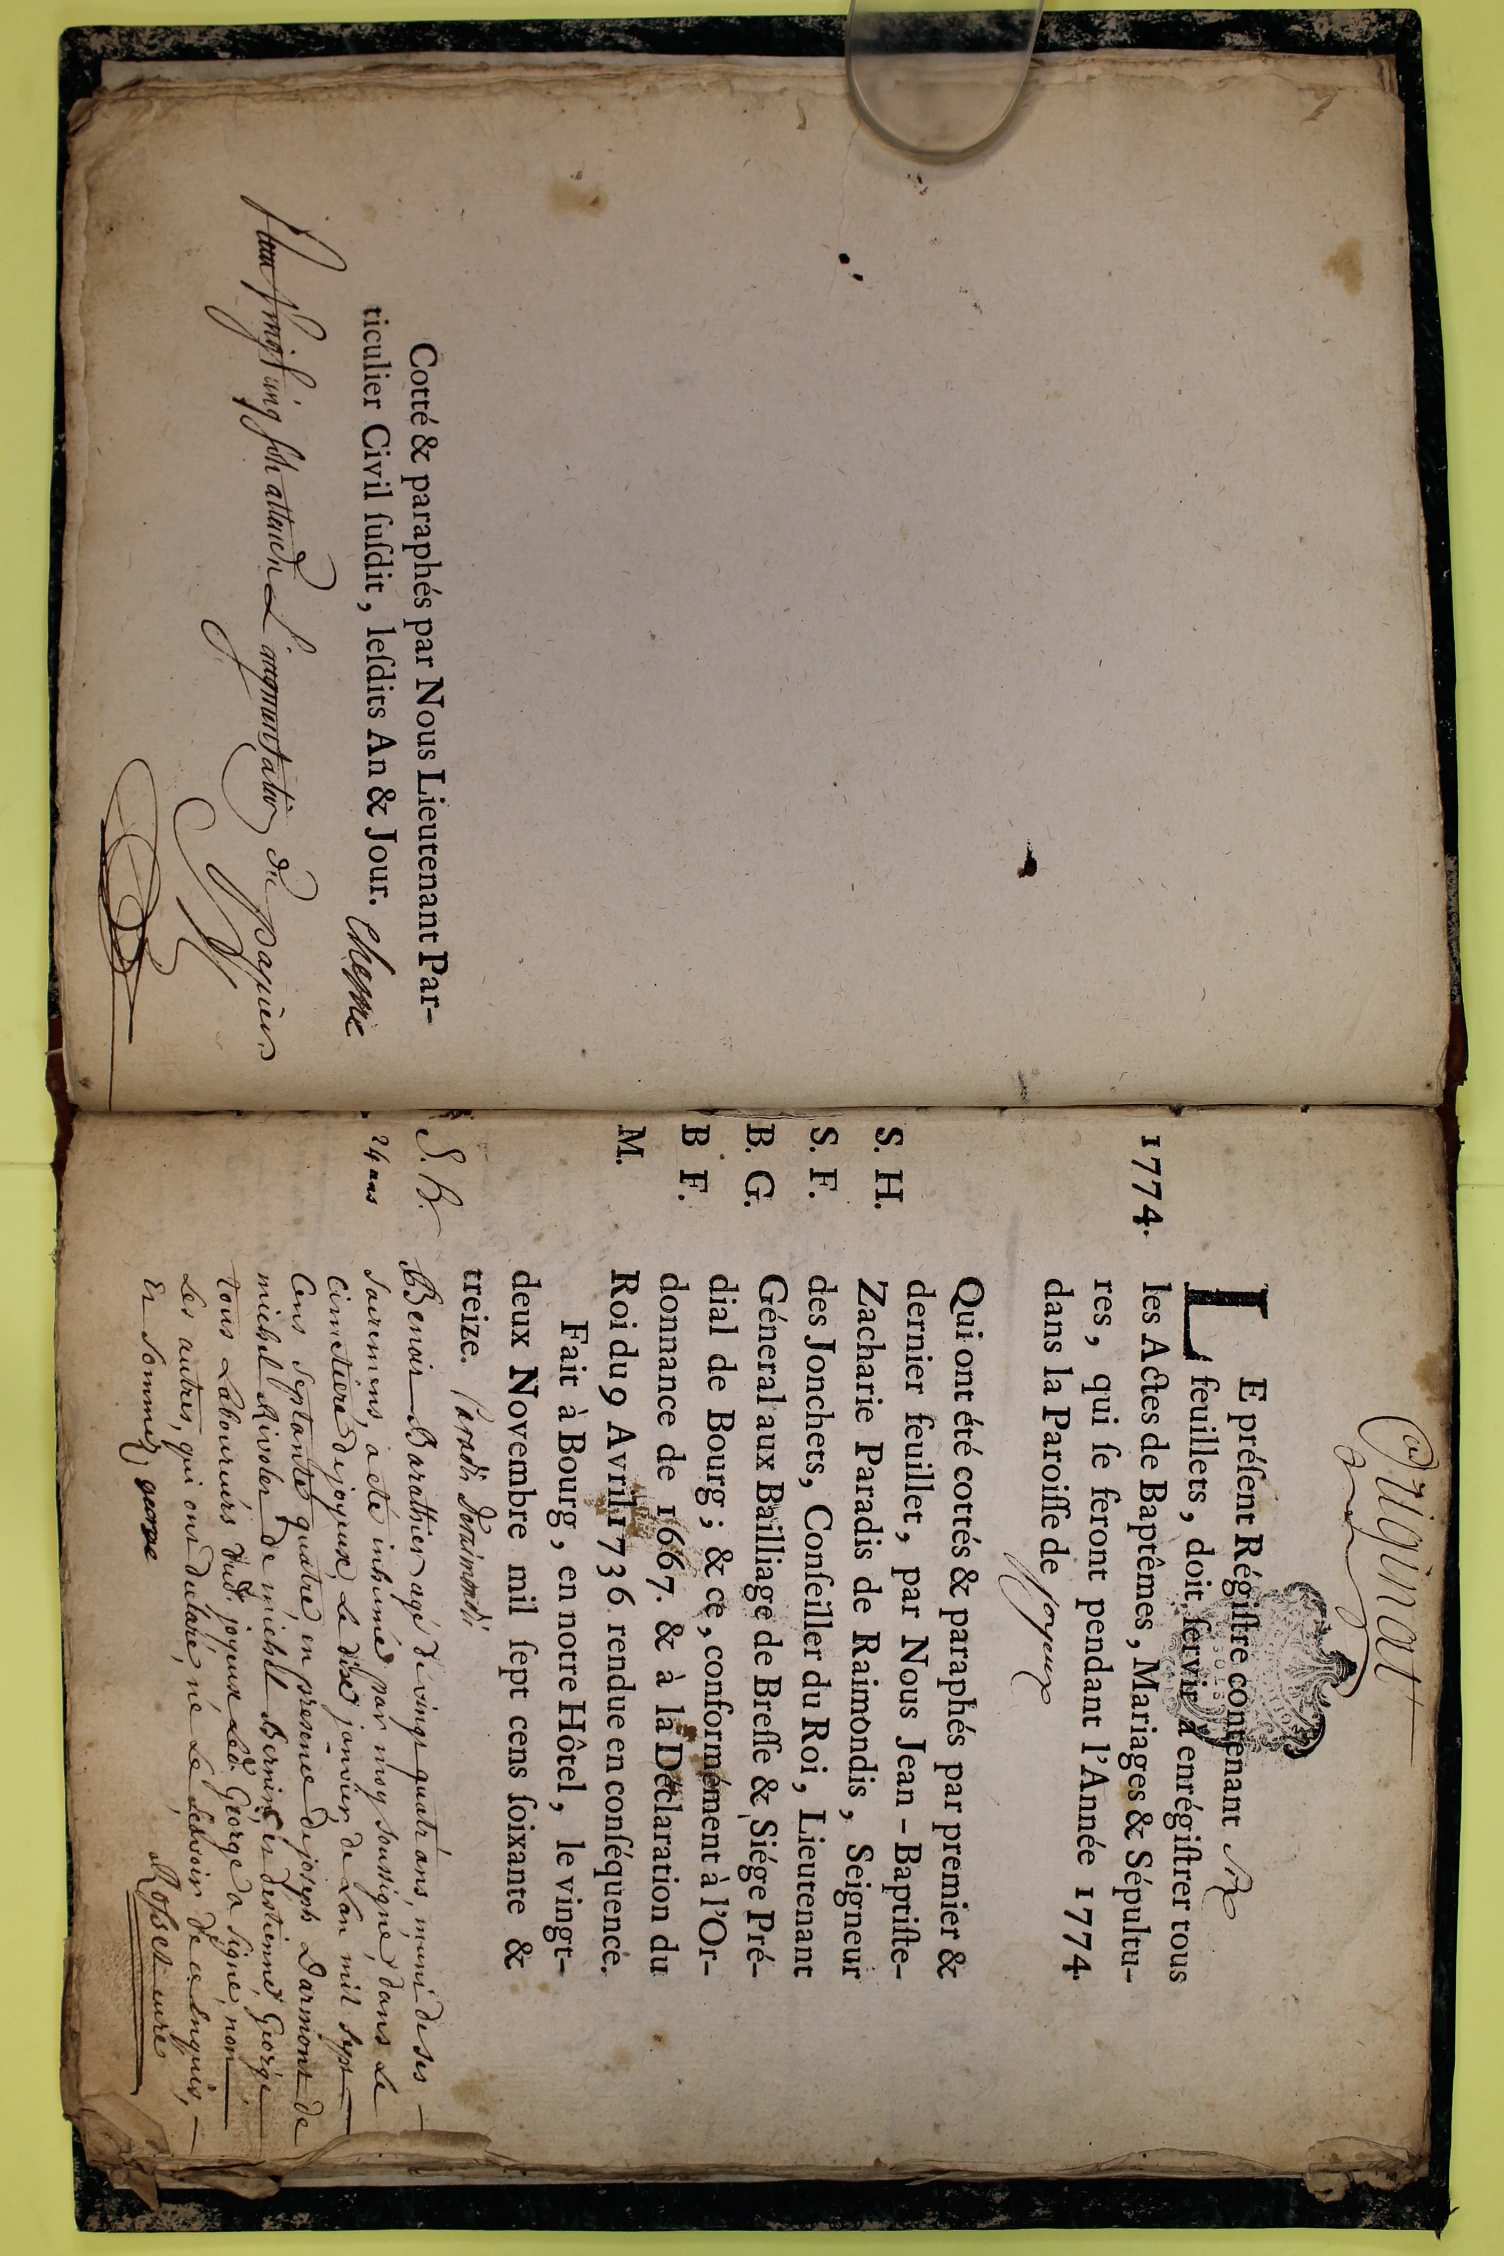 Cotté & paraphés par Nous Lieutenant Par-
ticulier Civil ſuſdit, leſdits An & Jour. Chesne
attendu L'augmentation du papier
Duginat
1774.
LE préſent Régiſtre contenant six
feuillets, doit ſervir à enrégiſtrer tous
les Actes de Baptêmes, Mariages & Sépultu-
res, qui ſe feront pendant l'Année 1774.
dans la Paroiſſe de Joyeux
Qui ont été cottés & paraphés par premier &
S. H. dernier feuillet, par Nous Jean-Baptiſte-
Zacharie Paradis de Raimondis, Seigneur
S. F. des Jonchets, Conſeiller du Roi, Lieutenant
B. G. Géneral aux Bailliage de Breſſe & Siége Pré-
dial de Bourg; & ce, conformément à l'Or-
B F. donnance de 1667. & à la Déclaration du
M. Roi du 9 Avril 1736 rendue en conſéquence.
Fait à Bourg, en notre Hôtel, le vingt-
deux Novembre mil ſept cens ſoixante &
treize. Paradis Deraimondis
S. B. Benoit Barathier agé de vingt quatr'ans, muni de ses
24 ans Sacremens, a eté inhumé par moy soussigné, dans Le
Cimetiere de joyeux, Le dixe janvier de Lan mil sept
Cens Septante quatre en presence de joseph Darmont de
michel Rivolet de michel Bernin et d'estienne George
tous Laboureurs dud. joyeux Led. George a signé, non
Les autres, qui ont declaré, ne Le scavoir de ce enquis,
Et Sommez, george
Rosset curé